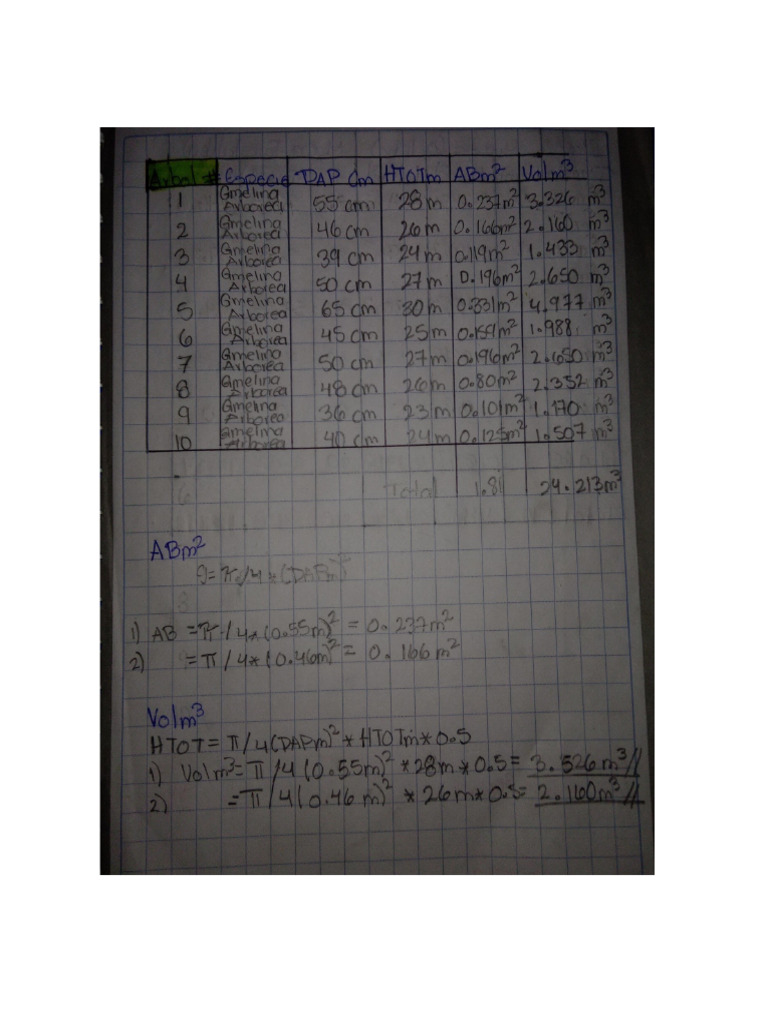 Arbol # Especie DAP Cm HTOTm ABm² Volm³
1 Gmelina Arborea 55 cm 28 m 0.237m² 3.326 m³
2 Gmelina Arborea 46 cm 26 m 0.166m² 2.160 m³
3 Gmelina Arborea 39 cm 24 m 0.119m² 1.433 m³
4 Gmelina Arborea 50 cm 27 m 0.196m² 2.650 m³
5 Gmelina Arborea 65 cm 30 m 0.331m² 4.977 m³
6 Gmelina Arborea 45 cm 25 m 0.159m² 1.988 m³
7 Gmelina Arborea 50 cm 27 m 0.196m² 2.650 m³
8 Gmelina Arborea 48 cm 26 m 0.80m² 2.352 m³
9 Gmelina Arborea 36 cm 23 m 0.101m² 1.170 m³
10 Gmelina Arborea 40 cm 24 m 0.125m² 1.507 m³
Total 1.81 24.213m³
ABm²
= π/4*(DAPm)²
1) AB = π/4*(0.55m)² = 0.237m²
2) = π/4*(0.46m)² = 0.166m²
Volm³
HTOT = π/4(DAPm)²*HTOTm*0.5
1) Volm³ = π/4(0.55m)² *28m*0.5= 3.526m³//
2) = π/4(0.46m)² *26m*0.5= 2.160m³//